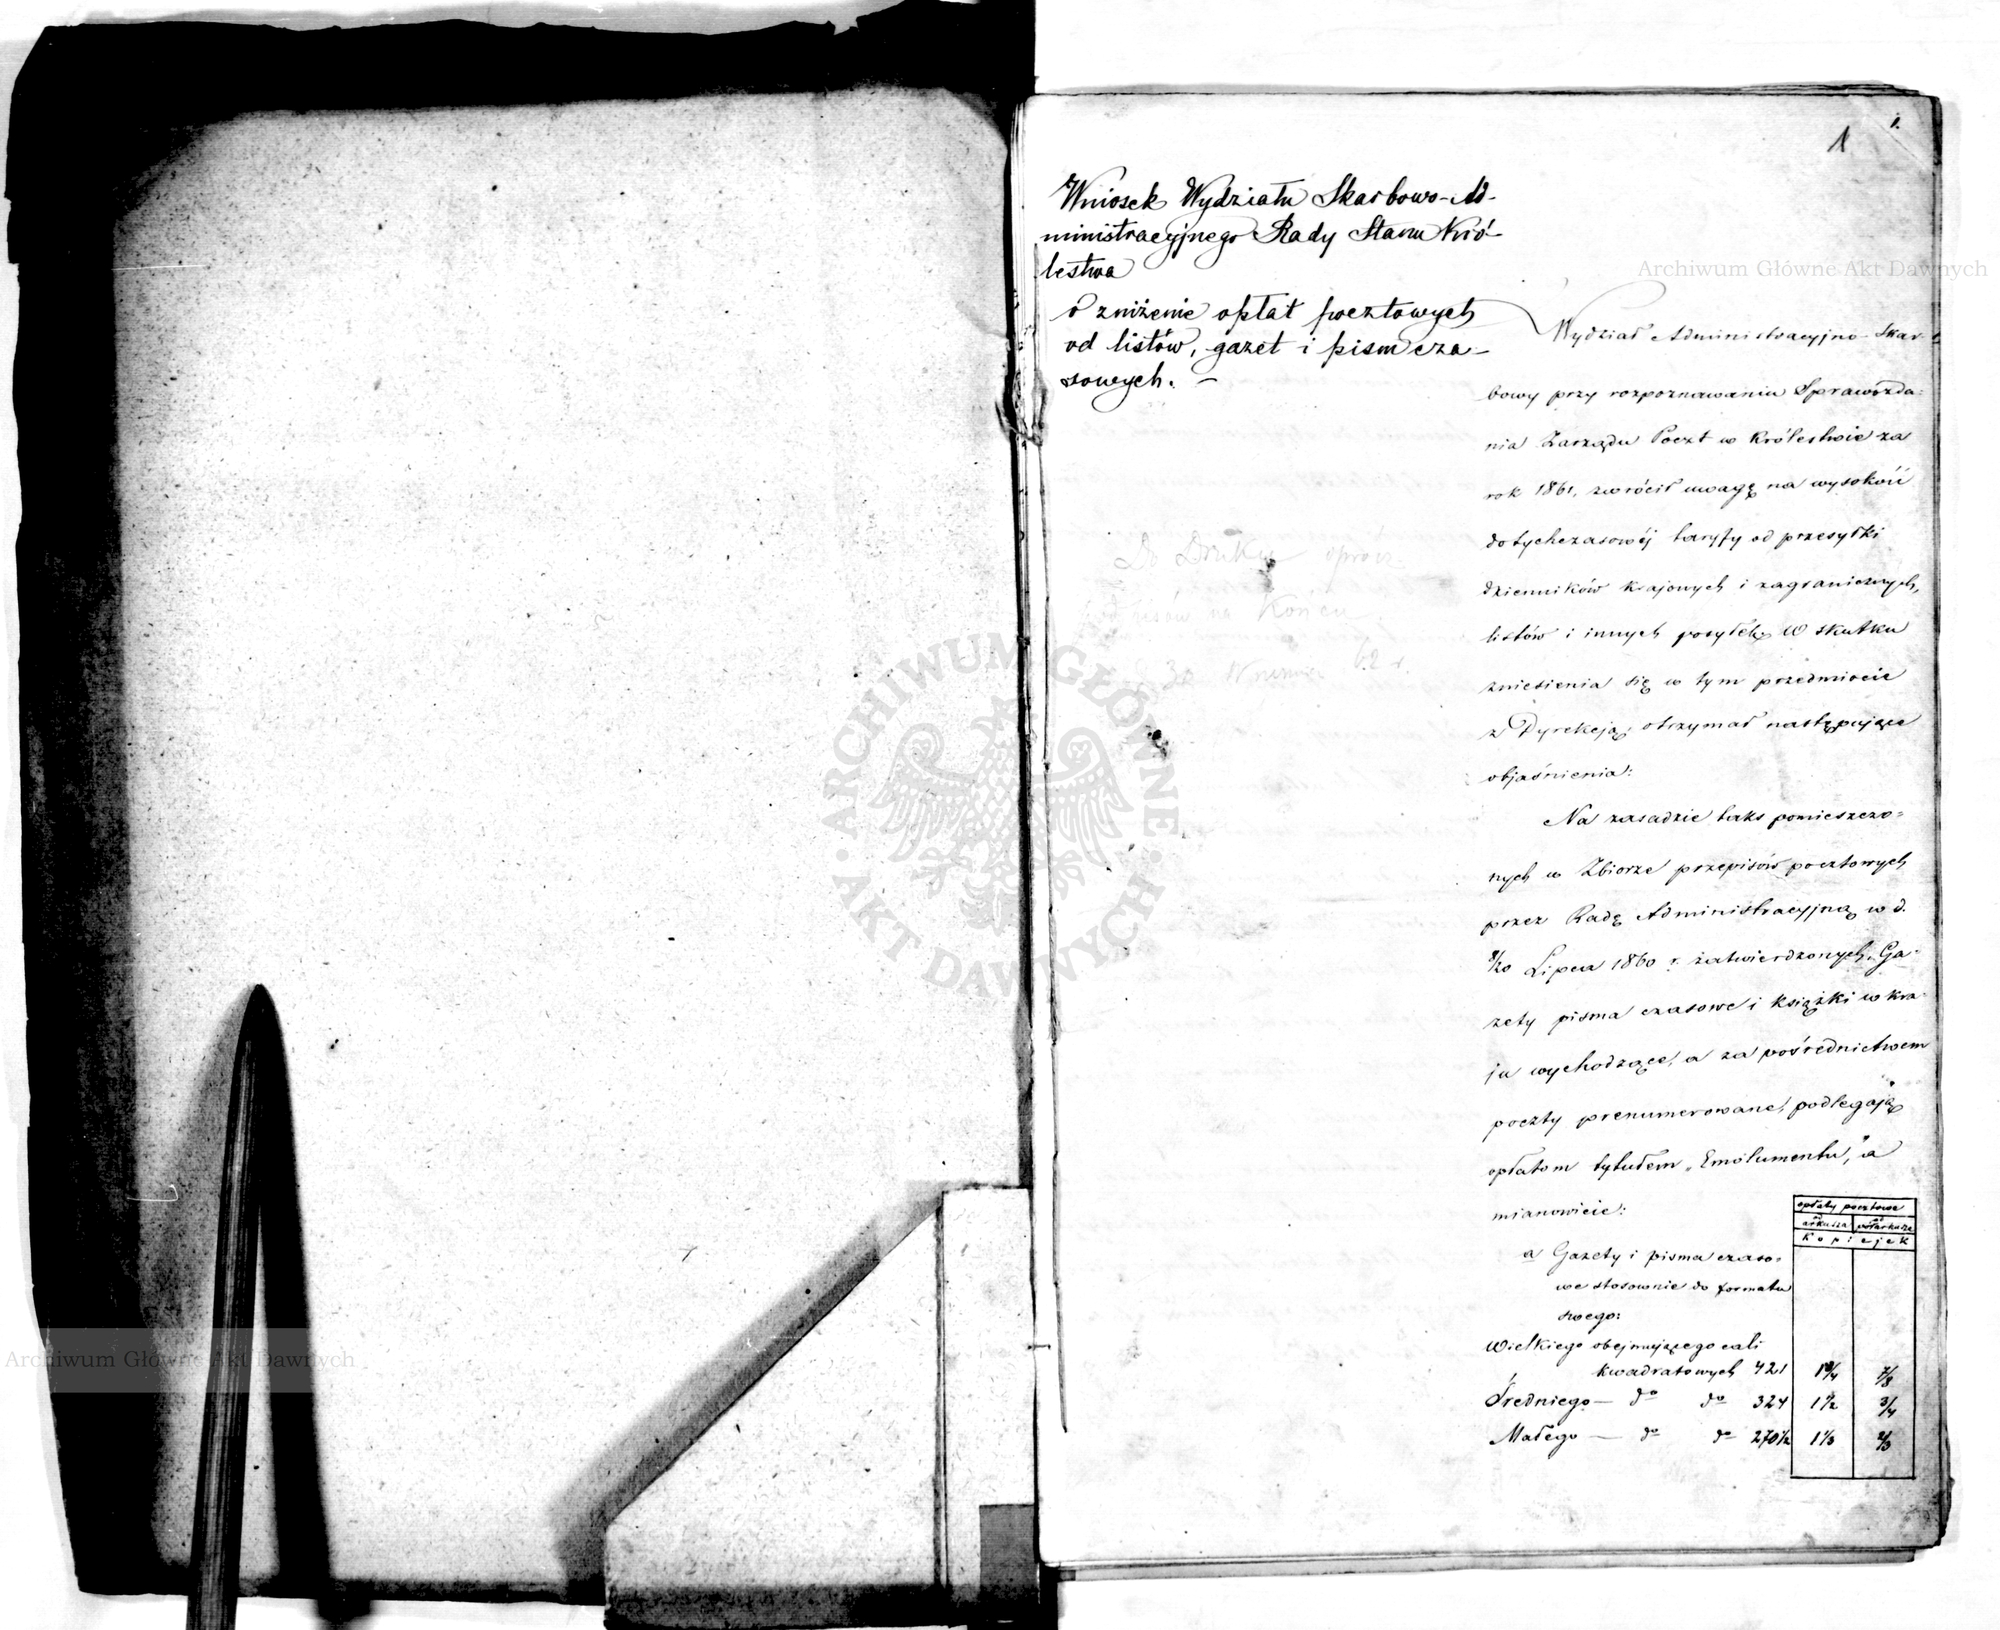 1.
1
Wniosek Wydziału Skarbowo-Ad-
ministracyjnego Rady Stanu Kró-
lestwa
o zniżenie opłat pocztowych
od listów, gazet i pism cza-
sowych. -
Do Druku oprócz
na Końcu
30 62 r.
Wydział Administracyjno-Skar-
bowy przy rozpoznawaniu Sprawozda=
nia Zarządu Poczt w Królestwie za
rok 1861, zwrócił uwagę na wysokość
dotychczasowéj taryfy od przesyłki
dzienników krajowych i zagranicznych,
listów i innych posyłek. W skutku
zniesienia się w tym przedmiocie
z Dyrekcją, otrzymał następujące
objaśnienia:
Na zasadzie taks pomieszczo=
nych w Zbiorze przepisów pocztowych
przez Radę Administracyjną w d.
8/20 Lipca 1860 r. zatwierdzonych, Ga=
zety pisma czasowe i książki w kra=
ju wychodzące, a za pośrednictwem
poczty prenumerowane, podlegają
opłatom tytułem „Emolumentu," a
mianowicie:
opłaty pocztowe
od arkusza od półarkusza
Kopiejek
a Gazety i pisma czaso=
we stosownie do formatu
swego:
Wielkiego obejmującego cali
kwadratowych 421 1 3/4 7/8
Średniego — do do 324 1 1/2 3/4
Małego — do do 270 1/2 1 1/3 2/3
Archiwum Główne Akt Dawnych
Archiwum Główne Akt Dawnych
ARCHIWUM GŁÓWNE · AKT DAWNYCH ·